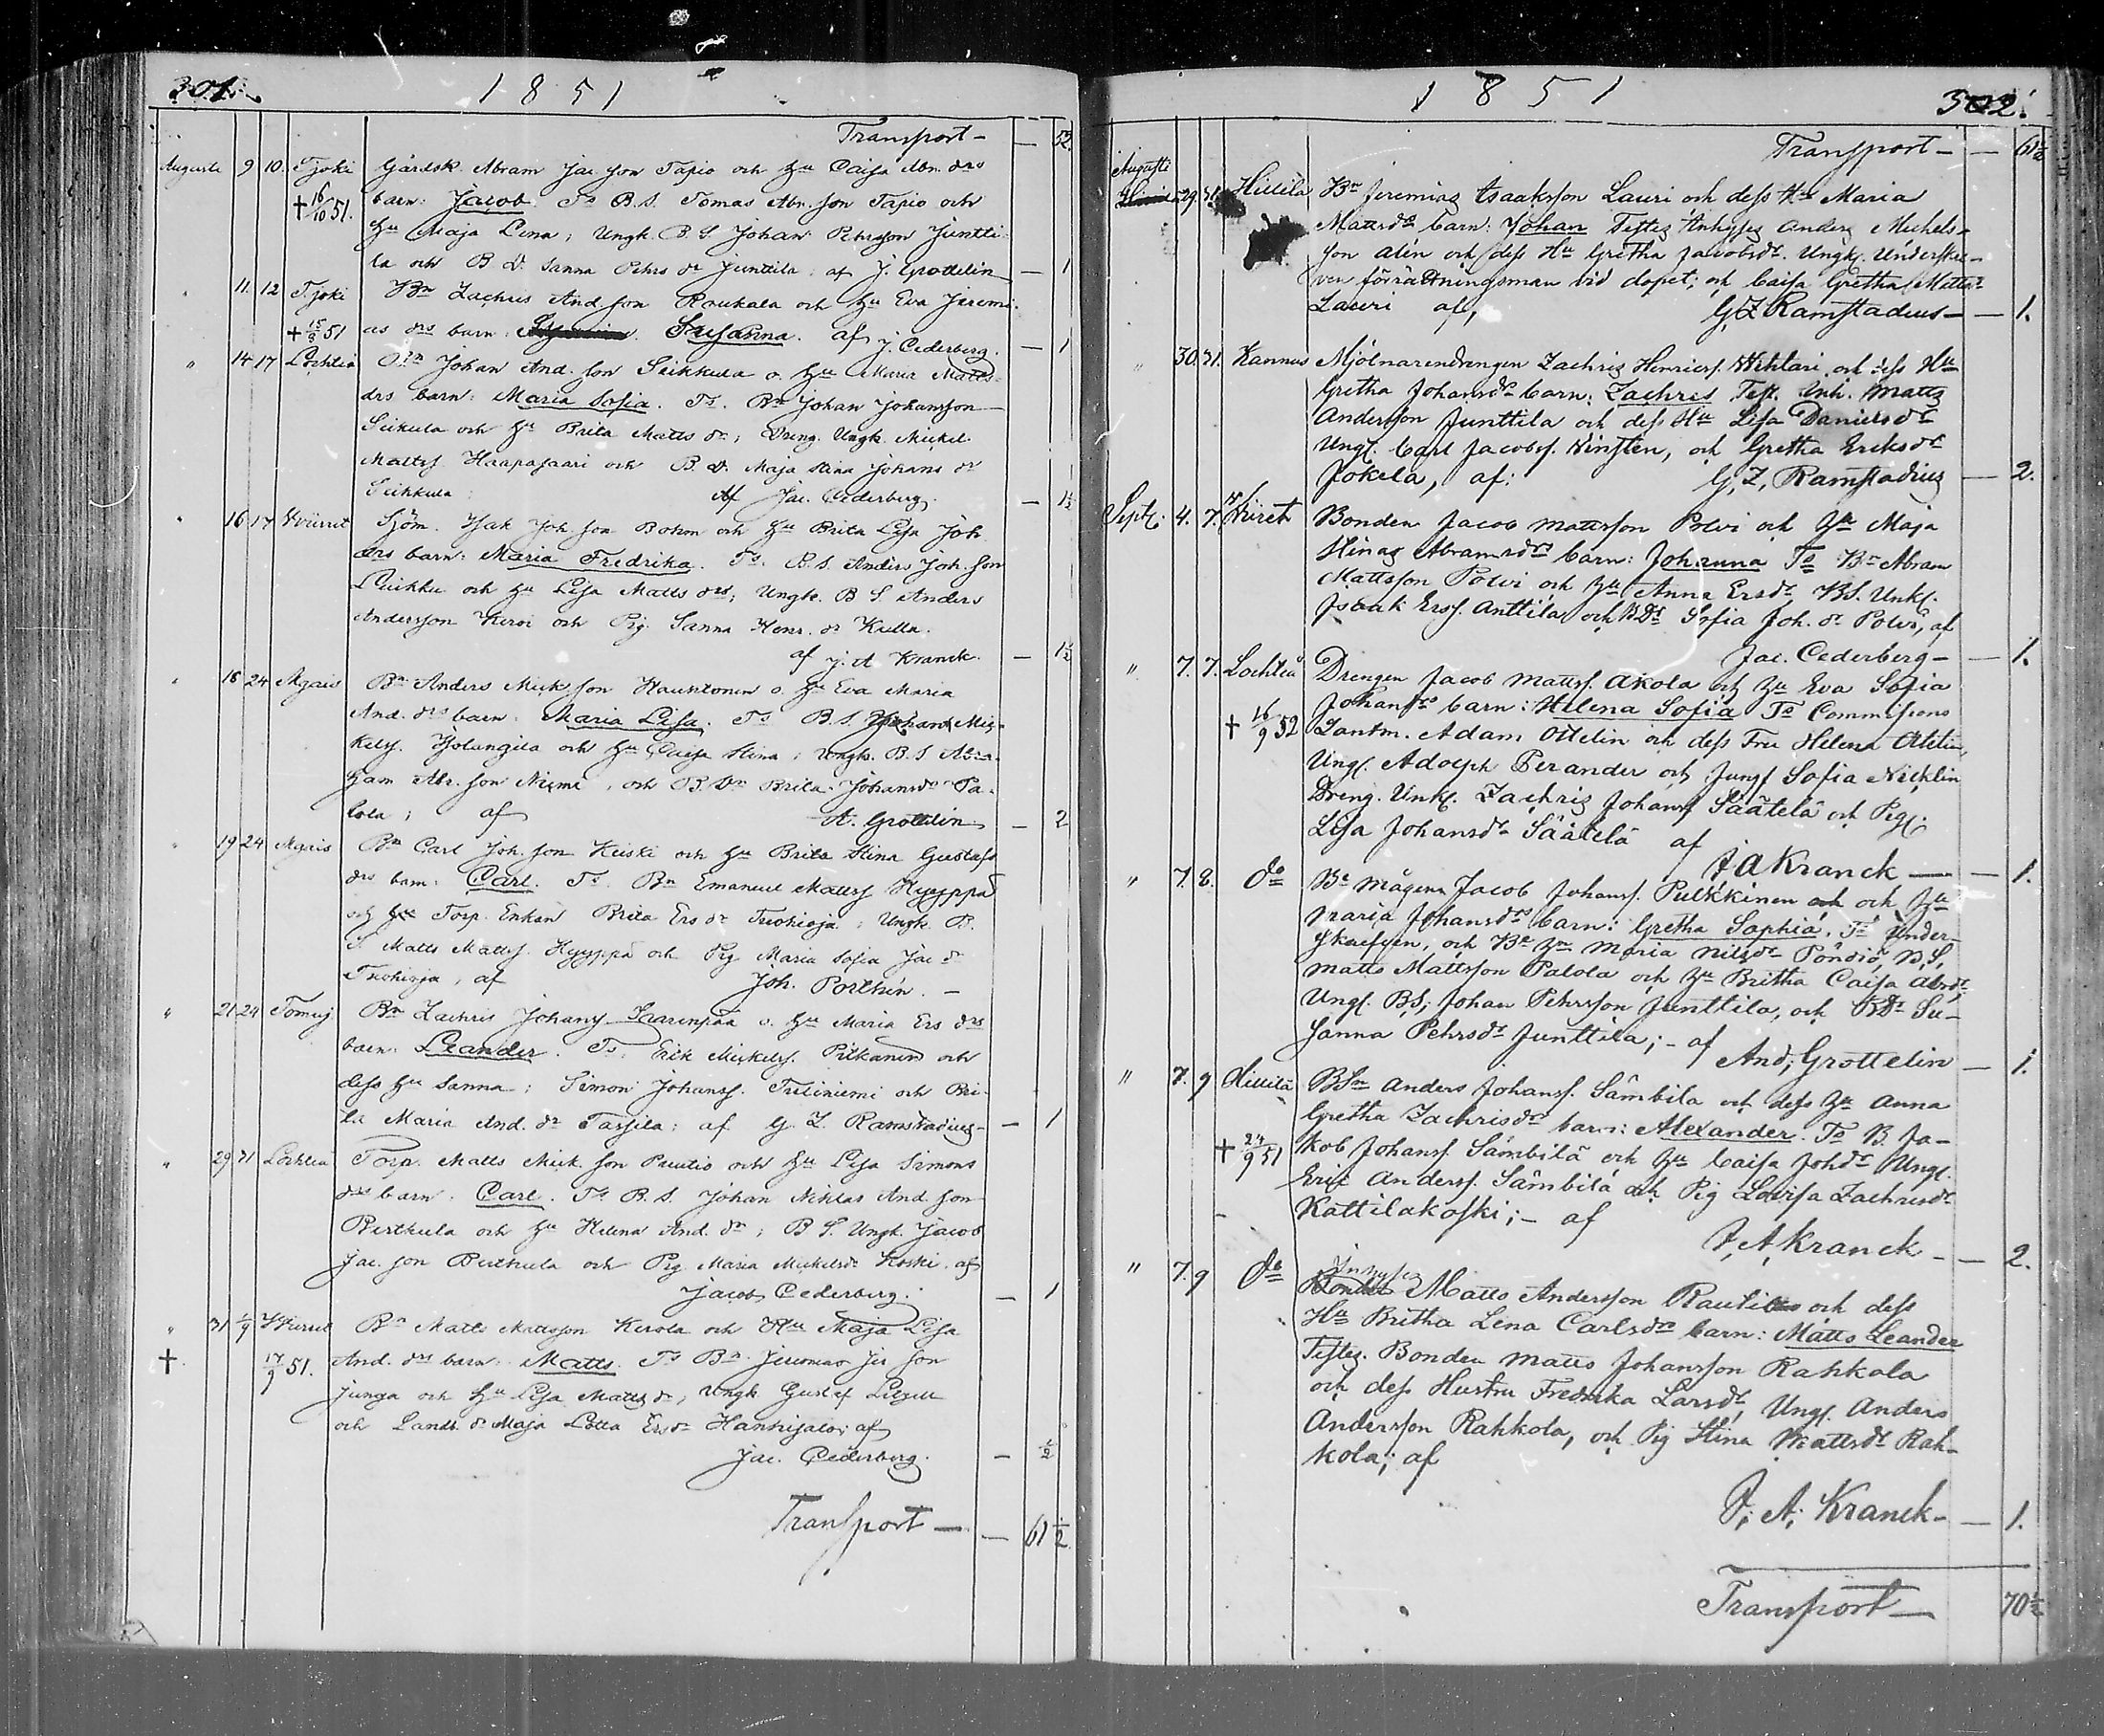 301.
1851
Transport — — 52.
Augusti 9 10. T.joki Gårdsk. Abram Jac. son Tapio och Hu Caisa Abr. drs
† 16/10 51. barn: Jacob. Ts B.S. Tomas Abr. son Tapio och
Hu Maja Lena; Ungk. B S Johan Pehrsson Juntti-
la och B D. Sanna Pehrs dr Junttila: af J. Grottelin — 1
11. 12 T.joki Bn Zachris And. son Roukala och Hu Eva Jeremi-
† 15/9 51 as drs barn: Susanna. af J. Cederberg. — 1
" 14 17 Lochteå Bn Johan And. son Seikkula o. Hu Maria Matts-
drs barn: Maria Sofia. Ts. Bn Johan Johansson
Seikula och Hu Brita Matts dr; Dreng. Ungk. Mickel
Mattss. Haapasaari och B. D. Maja Stina Johans dr
Seikkula; Af Jac. Cederberg. — 1½
" 16 17 Wiirret Sjöm. Isak Joh. son Bohm och Hu Brita Lisa Joh.
drs barn: Maria Fredrika. Ts. B.S. Anders Joh. son
Luikku och Hu Lisa Matts drs; Ungk. B S. Anders
Andersson Keroi och Pig. Sanna Henr. dr Kulla.
af J. A Kranck. — 1½
" 18 24 Ågais Bn Anders Mick. son Hauhtonen o. Hu Eva Maria
And. drs barn: Maria Lisa. Ts B.S. Johan Mic-
kels. Isolangila och Hu Caisa Stina; Ungk. B.S Abra-
ham Abr. son Niemi, och B. Dr Brita Johansdr Pa-
lola; af A. Grottelin — 2
" 19 24 Ågais Bn Carl Joh. son Keiski och Hu Brita Stina Gustafs
drs barn: Carl. Ts. Bn Emanuel Mattss Hyyppä
och Torp. Enkan Brita Ers dr Tuohioja; Ungk. B.
S. Matts Mattss. Hyyppä och Pig. Maria Sofia Jac dr
Tuohioja, af Joh. Porthén. —
" 21 24 Tomuj. Bn Zachris Johans. Saarenpää o. Hu Maria Ers drs
barn: Leander. Ts. Erik Mickels. Pitkänen och
dess Hu Sanna; Simon Johanss. Treiniemi och Bri-
ta Maria And. dr Tassila: af G. Z. Ramstadius — 1
" 29 31 Lochteå Torp. Matts Mick. son Puutio och Hu Lisa Simons
drs barn: Carl. Ts B.S. Johan Niklas And. son
Pertkula och Hu Helena And. dr; B S. Ungk. Jacob
Jac. son Pertkula och Pig Maria Mickelsdr Koski. af
Jacob Cederberg. — 1
" 31 1/9 Wiirret Bn Matts Mattsson Kerola och Hu Maja Lisa
† 17/9 51. And. drs barn: Matts. Ts Bn Jeremias Jer son
Junga och Hu Lisa Matts dr; Ungk Gustaf
och Landb. dr Maja Lotta Ersdr Hankisalo; af
Jac. Cederberg. — ½
Transport — — 61½
1851
302.
Transport — — 61½
Augusti
29. 31 Hillilä Bn Jeremias Isaaksson Lauri och dess Hu Maria
Mattsdr barn: Johan Testes Inhyses Anders Michels-
son Alén och dess Hu Gretha Jacobsdr. Ungk. Underskre-
ven förrättningsman vid dopet; och Caisa Gretha Mattsdr
Lauri af, G Z Ramstadius — — 1.
" 30. 31. Kannus Mjölnaredrengen Zachris Henricss. Wihtari och dess Hu
Gretha Johansdr barn: Zachris Test. Inh. Matts
Andersson Junttila och dess Hu Lisa Danielsdr
Ungk. Carl Jacobss. Winstén, och Gretha Ericksdr
Jokela, af: G, Z, Ramstadius — 2.
Septb. 4. 7. Wiiret Bonden Jacob Mattsson Polvi och Hu Maja
Stinas Abramsdrs barn: Johanna Ts Bn Abram
Mattsson Polvi och Hu Anna Ersdr BS. Unk.
Isaak Erss. Anttila och BDr Sofia Joh. dr Polvi, af
Jac. Cederberg — — 1.
" 7. 7. Lochteå Drengen Jacob Mattss. Akola och Hu Eva Sofia
† 16/9 52 Johansdrs barn: Helena Sofia Ts Commissions
Lantm. Adam Ottelin och dess Fru Helena Ottelin,
Ungk. Adolph Perander och Jungf Sofia Nicklin
Dreng. Unk. Zachris Johanss Säätelä och Pig.
Lisa Johansdr Säätelä af
J A Kranck — — 1.
" 7. 8. do Be mågen Jacob Johanss. Pulkkinen och Hu
Maria Johansdrs barn: Gretha Sophia. Ts Under-
skrefven, och Be Hu Maria Nilsdr Pöndiö, B, S,
Matts Mattsson Palola och Hu Britha Caisa Abrdr,
Ungk. BS, Johan Pehrsson Junttila, och BDr Su-
sanna Pehrsdr Junttila; - af And, Grottelin — 1.
" 7. 9 Hillilä BSn Anders Johanss. Sämbilä och dess Hu Anna
Gretha Zachrisdrs barn: Alexander. Ts B. Ja-
† 24/9 51 kob Johanss. Sämbilä och Hu Caisa Johdr Ungk.
Eric Anderss. Sämbilä och Pig Lovisa Zachrisdr
Kattilakoski; - af
J, A, Kranck — — 2.
" 7. 9 do Inhyses
Bonden Matts Andersson Rautio och dess
Hu Britha Lena Carlsdrs barn: Matts Leander
Testes. Bonden Matts Johansson Rahkola
och dess Hustru Fredrika Larsdr, Ungk. Anders
Andersson Rahkola, och Pig Stina Mattsdr Rah-
kola; af
J. A. Kranck — — 1.
Transport — 70½